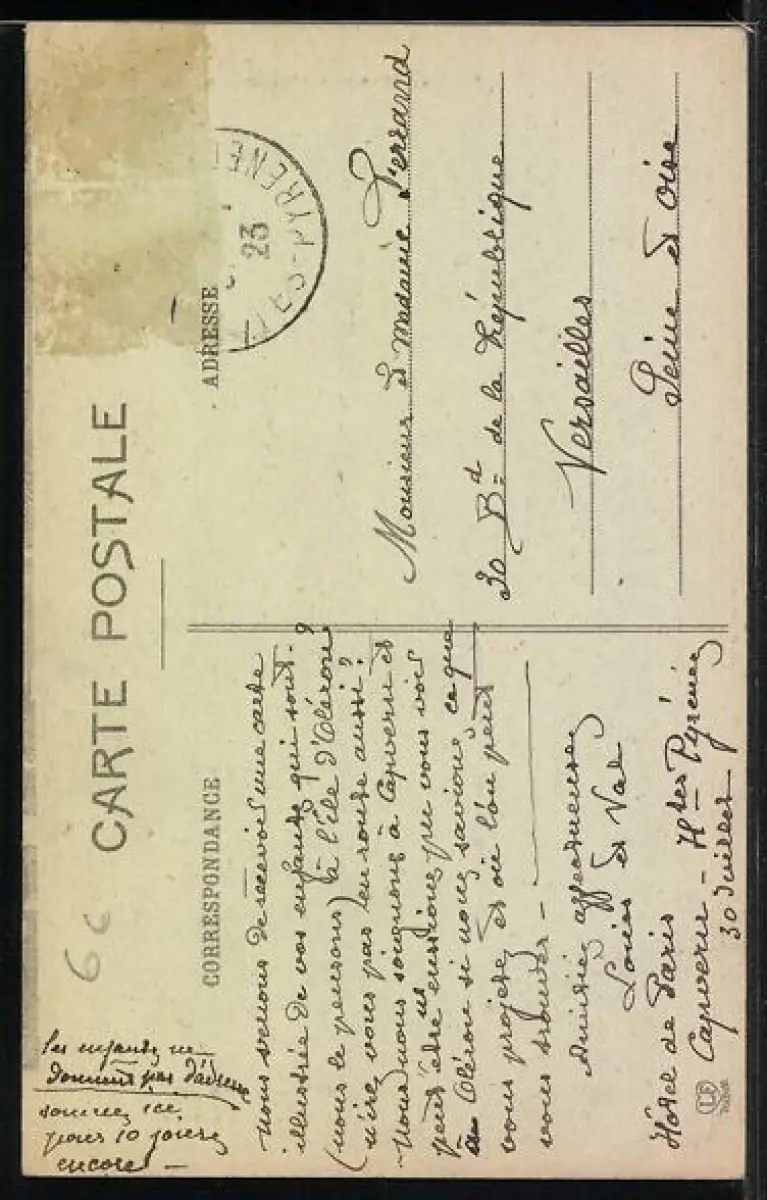 CARTE POSTALE
6c
CORRESPONDANCE
Nous venons de recevoir une carte
illustrée de vos enfants qui sont
(nous le pensons) à l'île d'Oléron ?
n'êtes vous pas en route aussi ?
Nous nous soignons à Capvern et
peut être eussions pu vous voir
à Oléron si nous savions ce que
vous projetez et où l'on peut
vous trouver -
Amitiés affectueuses
Louise et Val
Hôtel de Paris
Capvern - Htes Pyrénées
30 Juillet
Les enfants ne
donnent pas d'adresse
sommes ici
pour 10 jours
encore -
ADRESSE
23
TES-PYRENE
Monsieur et Madame Ferrand
30 Bd de la République
Versailles
Seine et Oise
LF